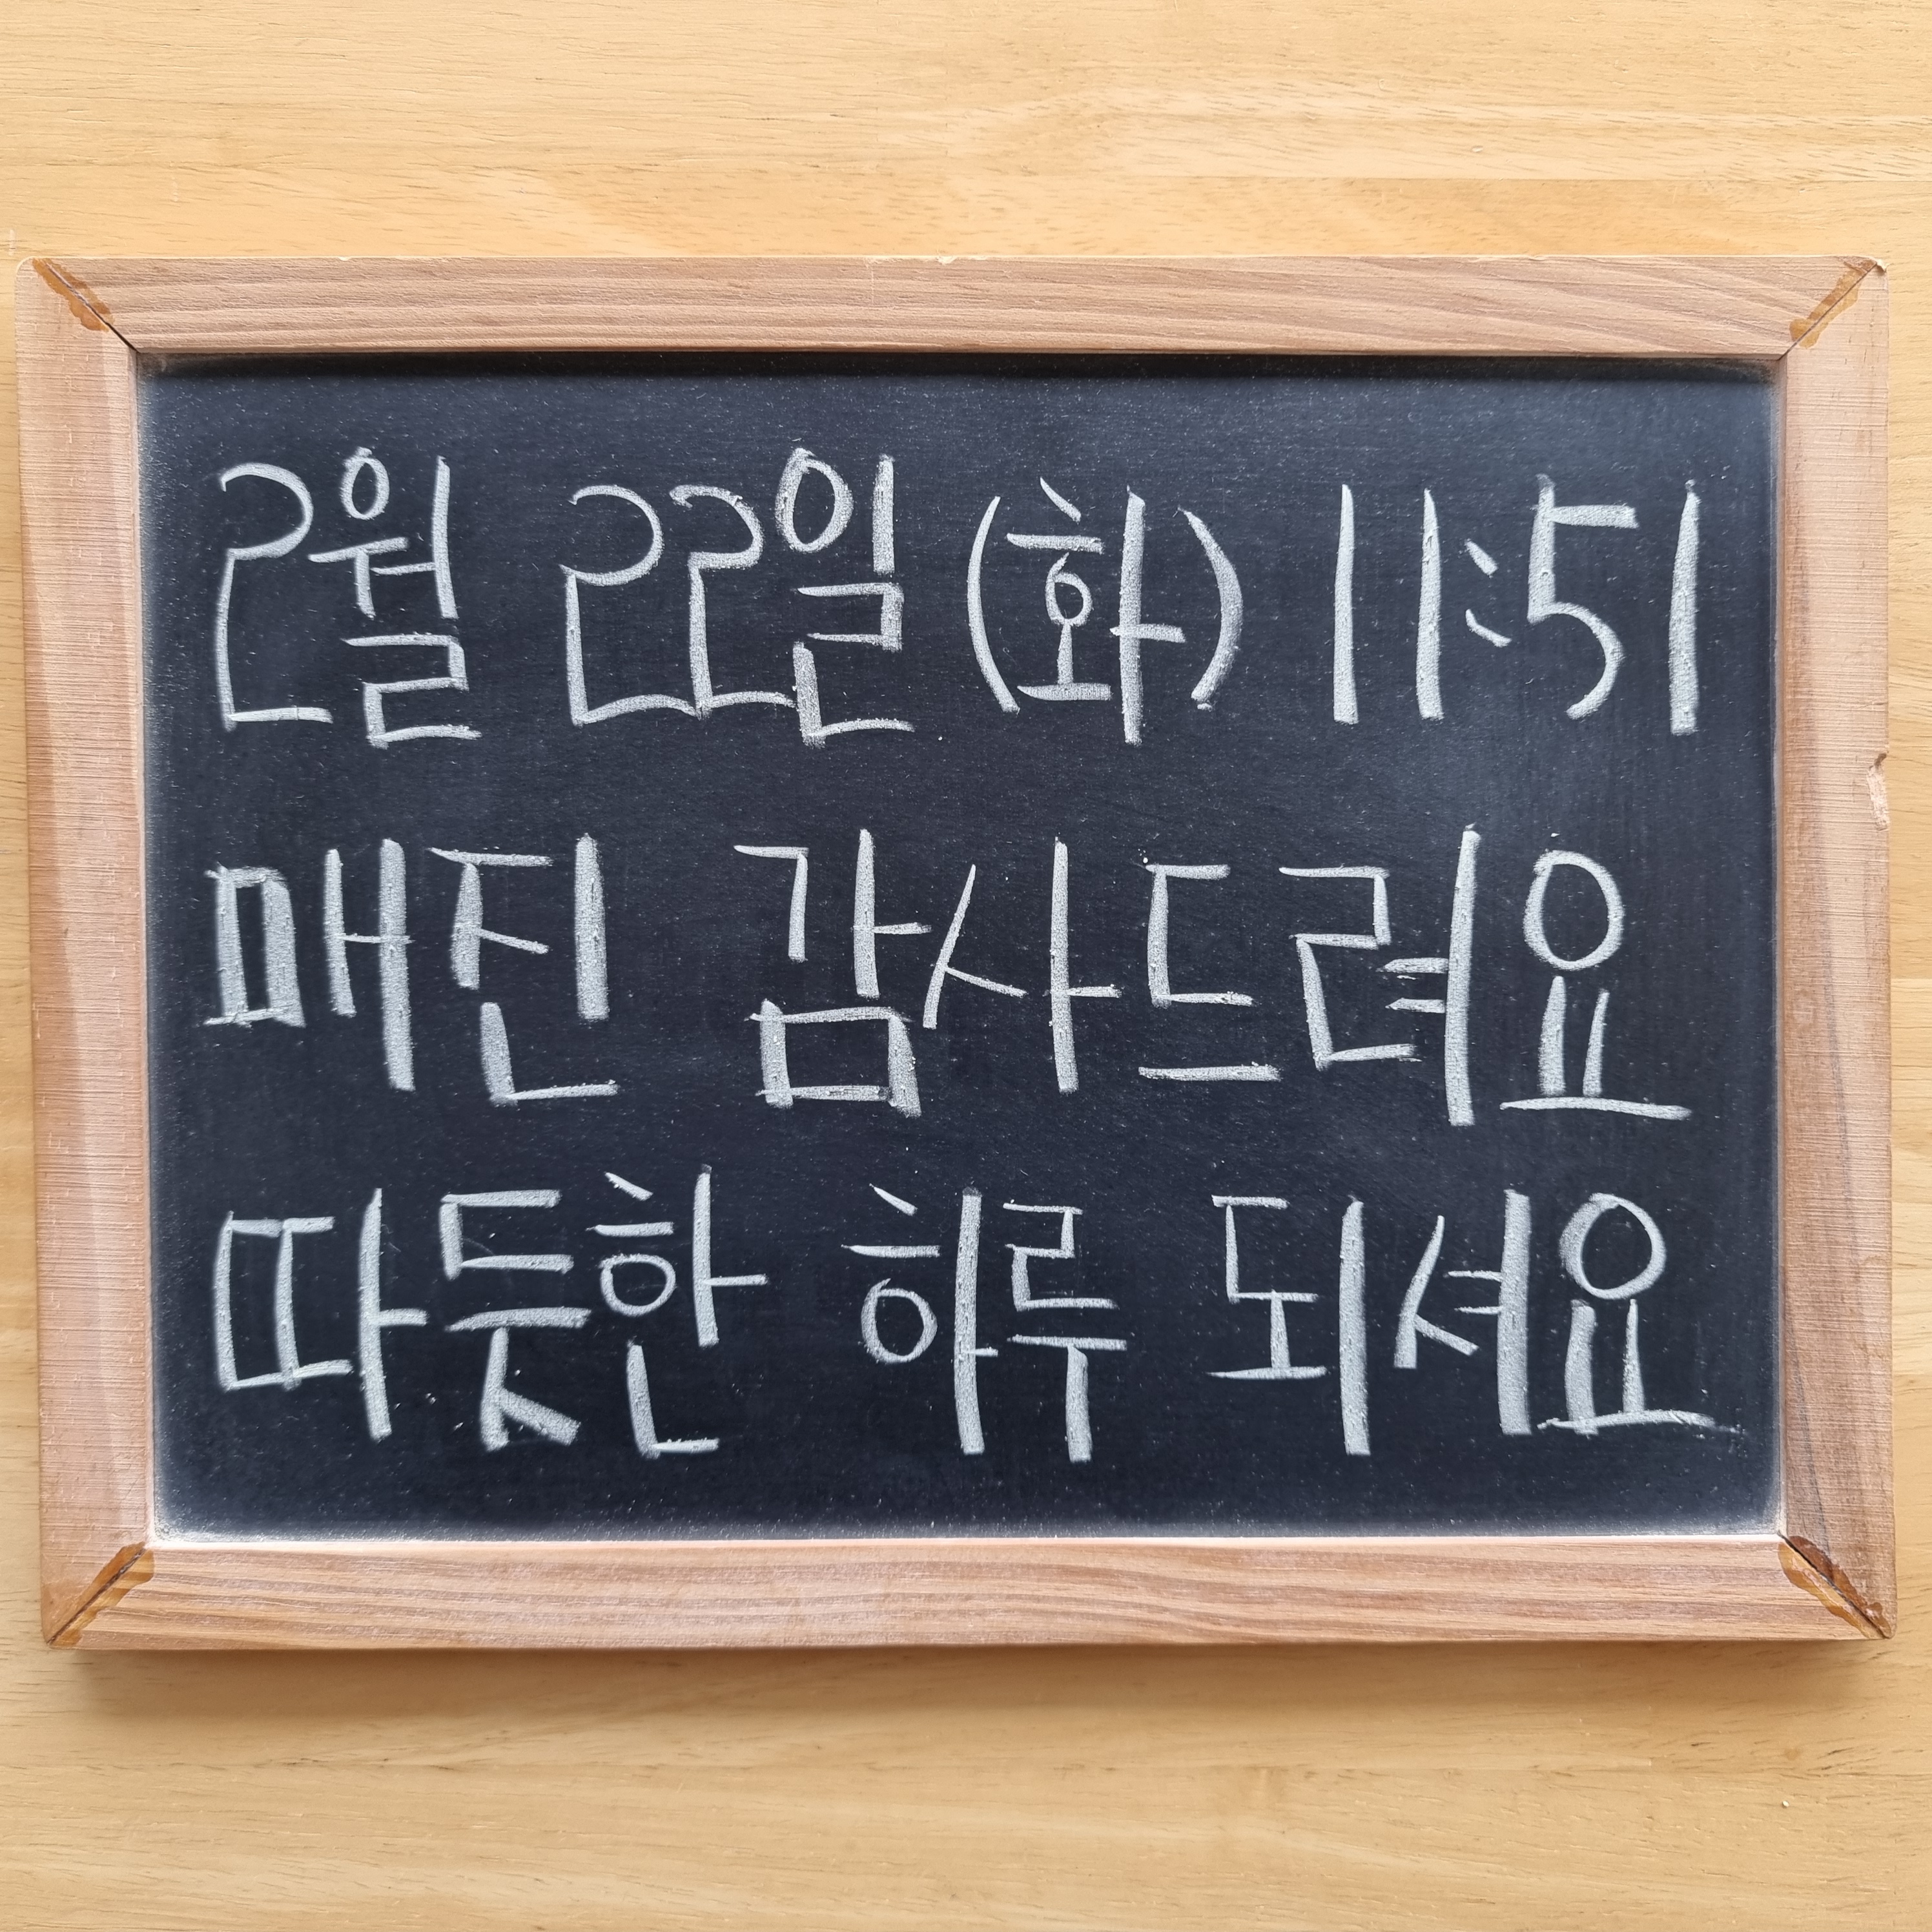 2월 22일 (화) 11:51
매진 감사드려요
따듯한 하루 되셔요